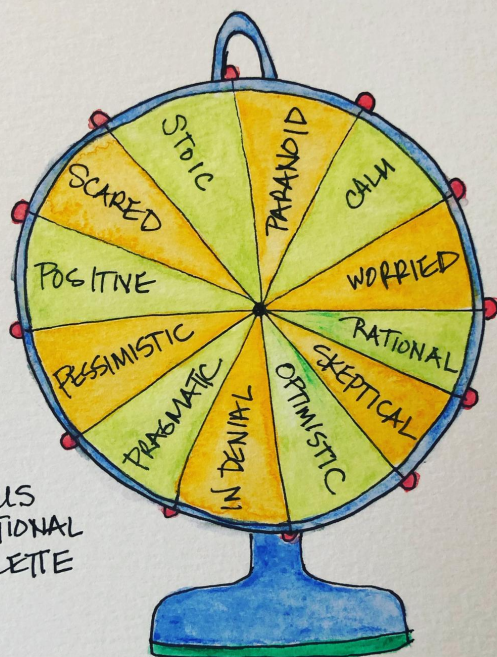 STOIC
PARANOID
CALM
WORRIED
RATIONAL
SKEPTICAL
OPTIMISTIC
IN DENIAL
PRAGMATIC
PESSIMISTIC
POSITIVE
SCARED
US
TIONAL
LETTE